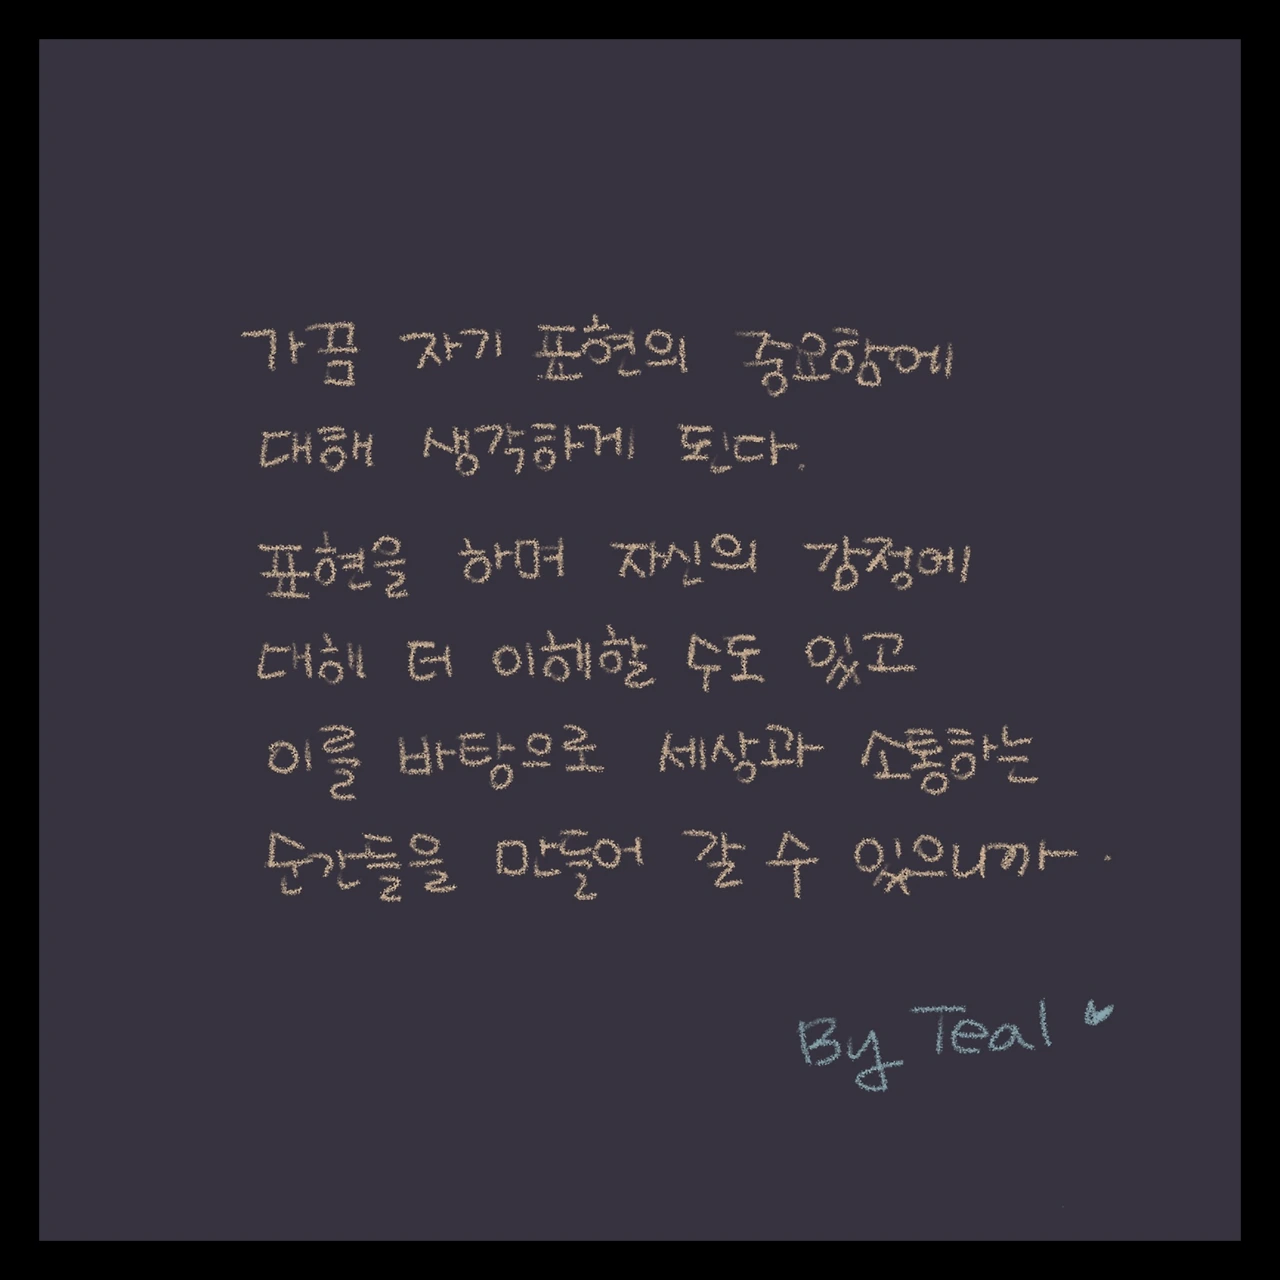 가끔 자기 표현의 중요함에
대해 생각하게 된다.
표현을 하며 자신의 감정에
대해 더 이해할 수도 있고
이를 바탕으로 세상과 소통하는
순간들을 만들어 갈 수 있으니까.
By Teal